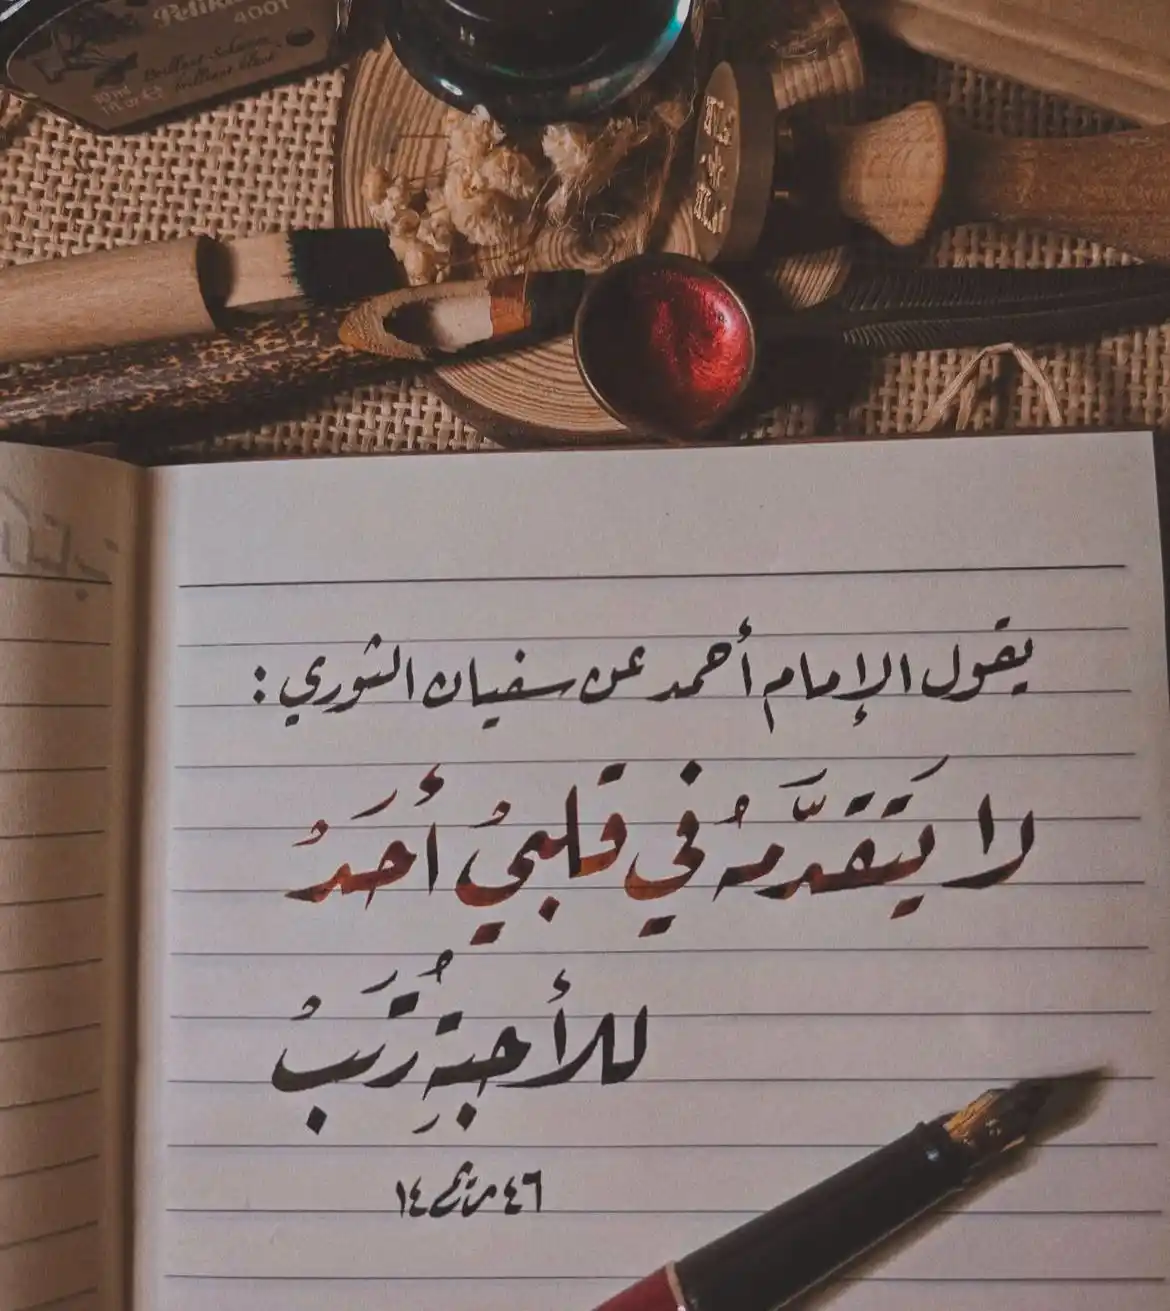 Pelikan
4001
Brillant-Schwarz
brilliant black
يقول الإمام أحمد عن سفيان الثوري :
لا يَتَقدَّمهُ في قلبيُ أَحَدُ
للأحبةِ رُتَبُ